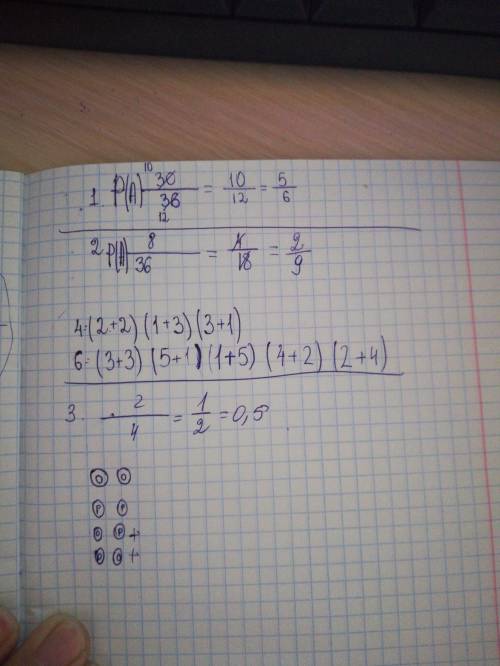 10
1. P(A) 30/36 = 10/12 = 5/6
12
2 P(A) 8/36 = 4/18 = 2/9
4:(2+2) (1+3) (3+1)
6:(3+3) (5+1) (1+5) (4+2) (2+4)
3. 2/4 = 1/2 = 0,5
О О
Р Р
О Р +
Р О +